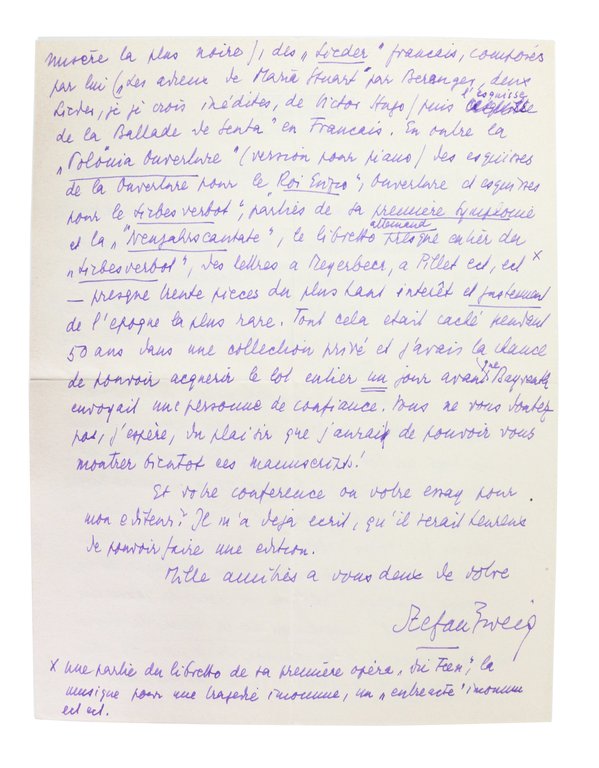 misère la plus noire), des „Lieder" francais, composés
par lui („Les adieux de Maria Stuart" par Beranger, deux
Lieder, je je crois inédites, de Victor Hugo) puis l'esquisse
de la Ballade de Senta" en Francais. En outre la
„Polonia Ouverture" (version pour piano) des esquisses
de la Ouverture pour le Roi Enzio", Ouverture et esquisses
pour le Liebesverbot", parties de sa première Symphonie
et la „Neujahrscantate", le libretto allemand presque entier du
„Liebesverbot", des lettres a Meyerbeer, a Pillet ect, ect x
— presque trente pieces du plus haut interêt et justement
de l'epoque la plus rare. Tout cela etait caché pendant
50 ans dans une collection privé et j'avais la chance
de pouvoir acquerir le lot entier un jour avant que Bayreuth
envoyait une personne de confiance. Vous ne vous doutez
pas, j'espère, du plaisir que j'aurais de pouvoir vous
montrer bientot ces manuscripts!
Et votre conference ou votre essay pour
mon editeur? Il m'a deja ecrit, qu'il serait heureux
de pouvoir faire une edition.
Mille amitiés a vous deux de votre
Stefan Zweig
x une partie du libretto de sa première opéra, die Feen", la
musique pour une tragedie inconnue, un „entreacte" inconnu
ect ect.